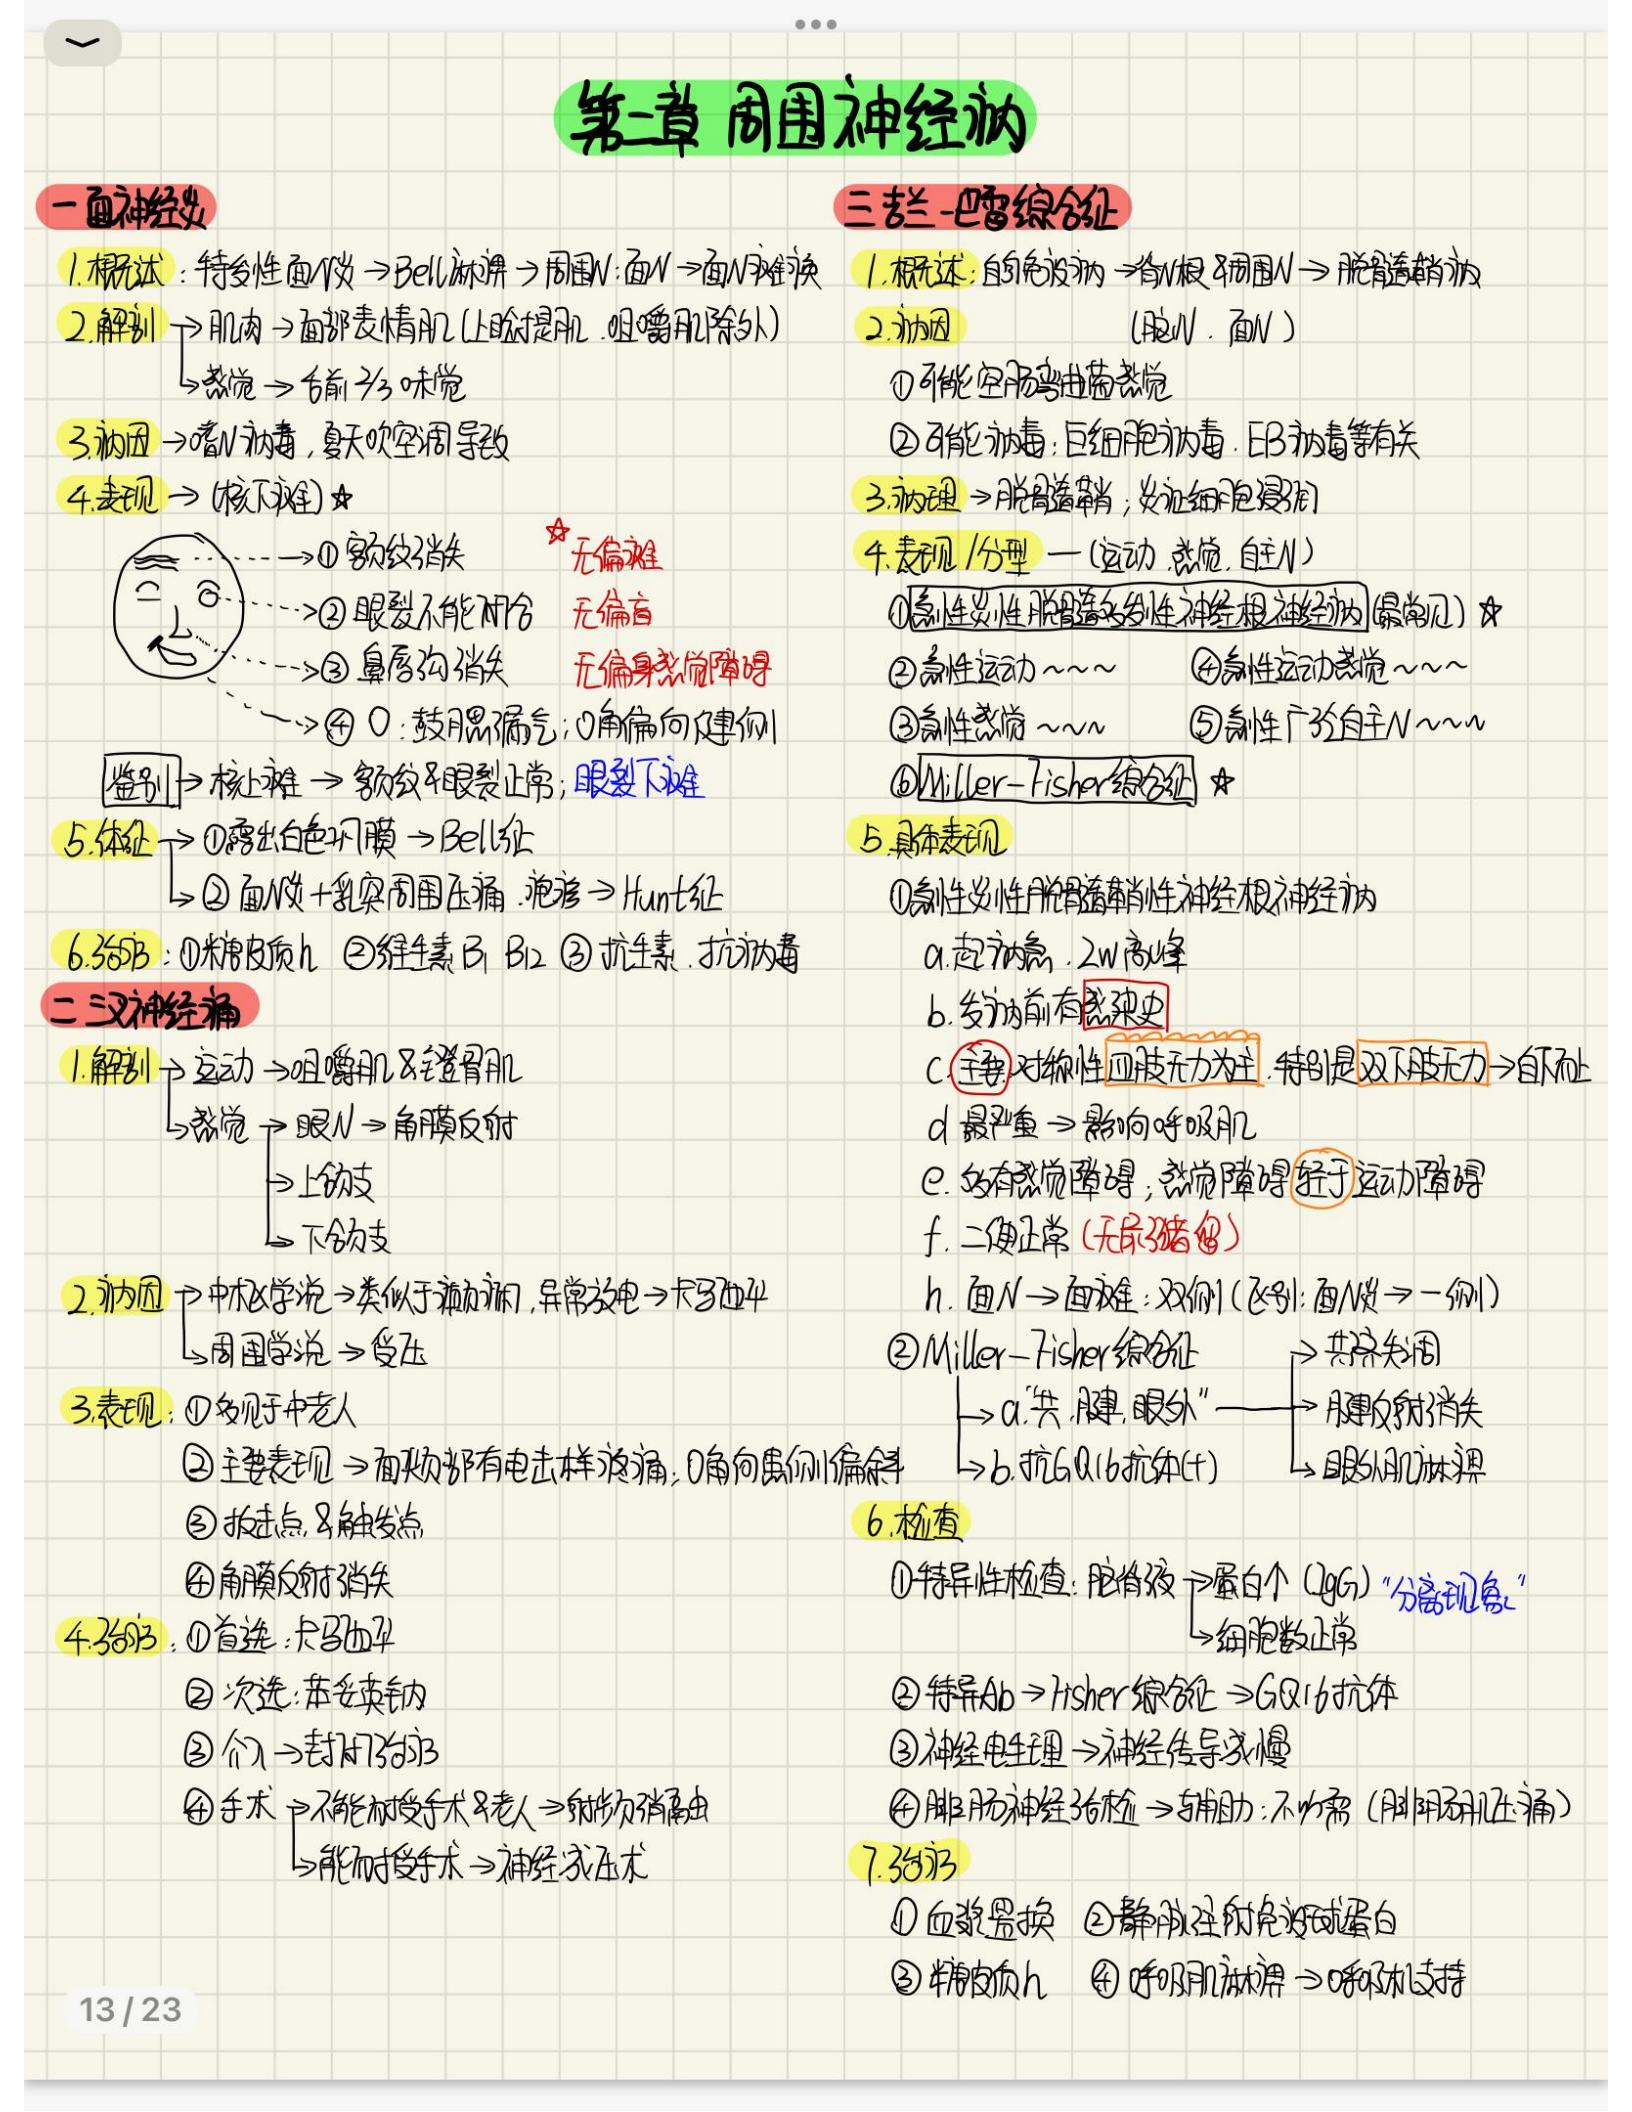 第二章 周围神经病
一 面神经炎
1.概述：特发性面N炎→Bell麻痹→周围N：面N→面N瘫痪
2.解剖→肌肉→面部表情肌(上睑提肌、咀嚼肌除外)
→感觉→舌前2/3味觉
3.病因→嗜N病毒，夏天吹空调导致
4.表现→(核下瘫)☆
→①额纹消失 ☆无偏瘫
→②眼裂不能闭合 无偏盲
→③鼻唇沟消失 无偏身感觉障碍
→④口：鼓腮漏气；口角偏向健侧
鉴别→核上瘫→额纹&眼裂正常；眼裂下瘫
5.体征→①露出白色巩膜→Bell征
→②面N炎+乳突周围压痛、疱疹→Hunt征
6.治疗：①糖皮质h ②维生素B1 B12 ③抗生素、抗病毒
二 三叉神经痛
1.解剖→运动→咀嚼肌&镫骨肌
→感觉→眼N→角膜反射
→上颌支
→下颌支
2.病因→中枢学说→类似于癫痫，异常放电→卡马西平
→周围学说→受压
3.表现：①多见于中老人
②主要表现→面颊部有电击样疼痛；口角向患侧偏斜
③扳击点&触发点
④角膜反射消失
4.治疗：①首选：卡马西平
②次选：苯妥英钠
③介入→封闭治疗
④手术→不能耐受手术&老人→射频消融
→能耐受手术→神经减压术
三 吉兰-巴雷综合征
1.概述：自身免疫病→脊N根&周围N→脱髓鞘病
2.病因 (脑N、面N)
①可能空肠弯曲菌感觉
②可能病毒：巨细胞病毒、EB病毒等有关
3.病理→脱髓鞘；炎症细胞浸润
4.表现/分型—(运动、感觉、自主N)
①急性炎性脱髓鞘多发性神经根神经病(最常见)☆
②急性运动~~~ ④急性运动感觉~~~
③急性感觉~~~ ⑤急性广泛自主N~~~
⑥Miller-Fisher综合征☆
5.具体表现
①急性炎性脱髓鞘性神经根神经病
a.起病急、2w高峰
b.发病前有感染史
c.主要对称性四肢无力为主、特别是双下肢无力→自下而上
d 最严重→影响呼吸肌
e.多有感觉障碍；感觉障碍轻于运动障碍
f.二便正常(无尿潴留)
h.面N→面瘫：双侧(区别：面N炎→一侧)
②Miller-Fisher综合征 →共济失调
→a."共、腱、眼外"→腱反射消失
→b.抗GQ1b抗体(+) →眼外肌麻痹
6.检查
①特异性检查：脑脊液→蛋白↑(IgG) "分离现象"
→细胞数正常
②特异Ab→Fisher综合征→GQ1b抗体
③神经电生理→神经传导减慢
④腓肠神经活检→辅助：不必需(腓肠肌压痛)
7.治疗
①血浆置换 ②静脉注射免疫球蛋白
③糖皮质h ④呼吸肌麻痹→呼吸机支持
13/23